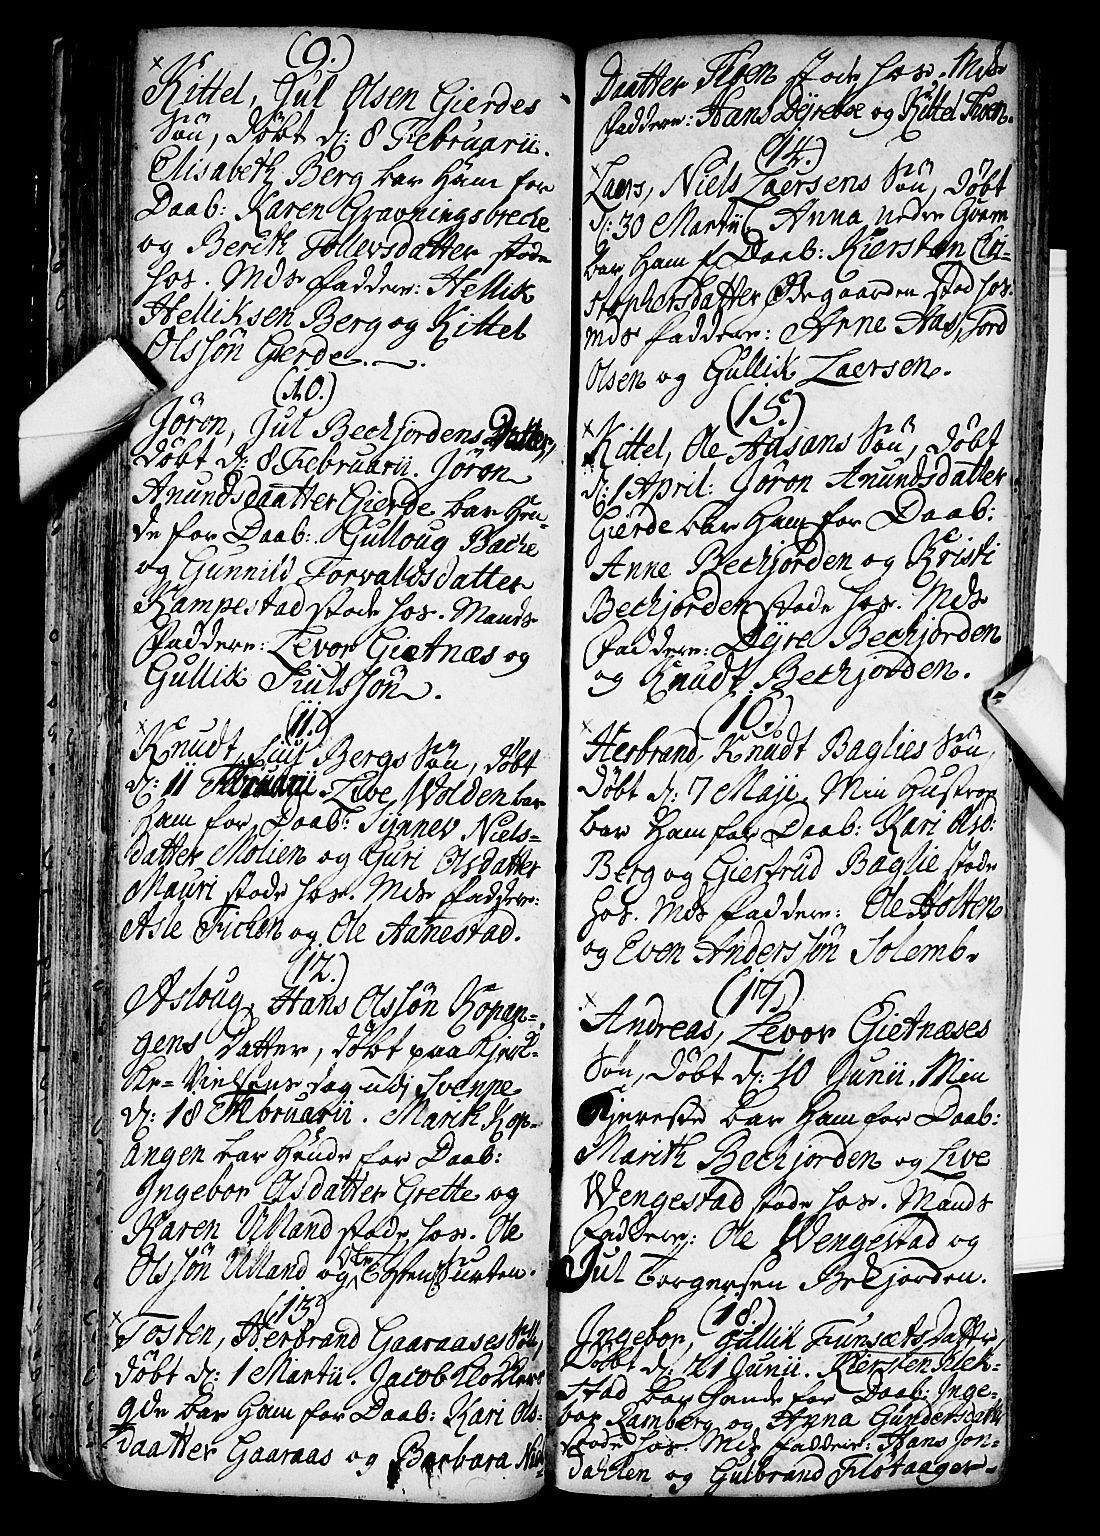 (9.)
Kittel, Jul Olsen Gierdes
Søn, døbt d: 8 Februarii.
Elisabeth Berg bar Ham for
Daab: Karen Gravningsbreche
og Berith Tollevsdatter stode
hos. Mds Faddere: Hellik
Helliksen Berg og Kittel
Olssøn Gierde.
(10.)
Jøron, Jul Bechjordens Datter,
døbt d: 8 Februarii. Jøron
Anundsdaatter Gierde bar Hen-
de for Daab: Gulloug Bache
og Gunnild Torvaldsdatter
Kampestad stode hos. Mands
Faddere: Levor Gietnæs og
Gullik Siulssøn.
(11.)
Knudt, Juul Bergs Søn, døbt
d: 11 Februarii. Live Wolden bar
Ham for Daab: Synnev Niels-
datter Molien og Guri Olsdatter
Mauri stode hos. Mds Faddere:
Asle Tichen og Ole Aanestad.
(12.)
Asloug, Hans Olssøn Kopan-
gens Datter, døbt paa Kjerk-
ke-Vielsens dag udj Svenne
d: 18 Februarii. Marith Kop-
angen bar Hende for Daab:
Ingebor Olsdatter Grette og
Karen Ulland stode hos. Ole
Olssøn Ulland og Ole Tosten Surten.
(13.)
Tosten, Herbrand Gaaraases Søn,
døbt d: 1 Martii. Jacob
bar Ham for Daab: Kari Ols-
daatter Gaaraas og Barbara Niels-
Daatter Floen stode hos. Mds
Faddere: Hans Dyrebøe og Kittel Floen.
(14.)
Laers, Niels Laersens Søn, døbt
d: 30 Martii. Anna nedre Gvarn
bar Ham f Daab: Kiersten Cri-
stophersdatter Ødegaarden stod hos.
Mds Faddere: Arne Aas, Tord
Olsen og Gullik Laersen.
(15.)
Kittel, Ole Aasans Søn, døbt
d: 1 April: Jøron Anundsdatter
Gierde bar Ham for Daab:
Anne Bechjorden og Kristi
Bechjorden stode hos. Mds
Faddere: Dyre Bechjorden
og Knudt Bechjorden.
(16.)
Herbrand, Knudt Baglies Søn,
døbt d: 7 Maji. Min Hustroe
bar Ham for Daab: Kari Olsd:
Berg og Giertrud Baglie stode
hos. Mds Faddere: Ole Holten
og Even Anderssøn Solemb.
(17.)
Andreas, Levor Gietnæses
Søn, døbt d: 10 Junii. Min
Kjereste bar Ham for Daab:
Marith Bechjorden og Live
Wengestad stode hos. Mands
Faddere: Ole Wengestad og
Jul Torgersen Bekjorden.
(18.)
Ingebor, Gullik Tunsæts Datter,
døbt d: 21 Junii. Kersten Klek-
stad bar Hende for Daab: Inge-
bor Ramberg og Anna Gundersdatter
stode hos. Mds Faddere: Hans Jon-
dahlen og Gulbrand Flotaager-